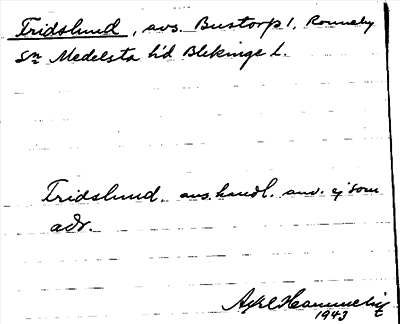 Fridslund, avs. Bustorp 1, Ronneby
sn Medelsta hd Blekinge l.
Fridslund. ans. handl. anv. ej som
adr.
Axel
1943